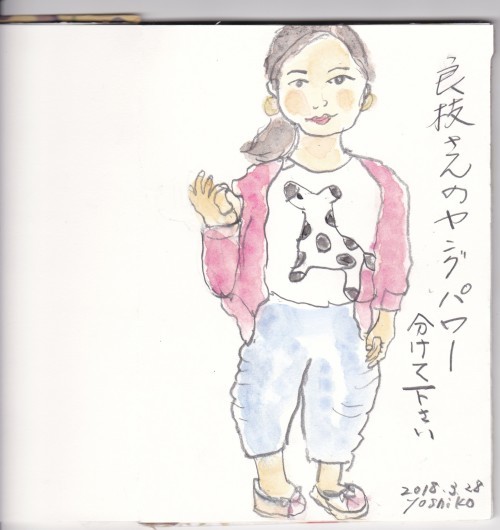 良枝さんのヤングパワー
分けて下さい
2018.3.28
YoShiKo